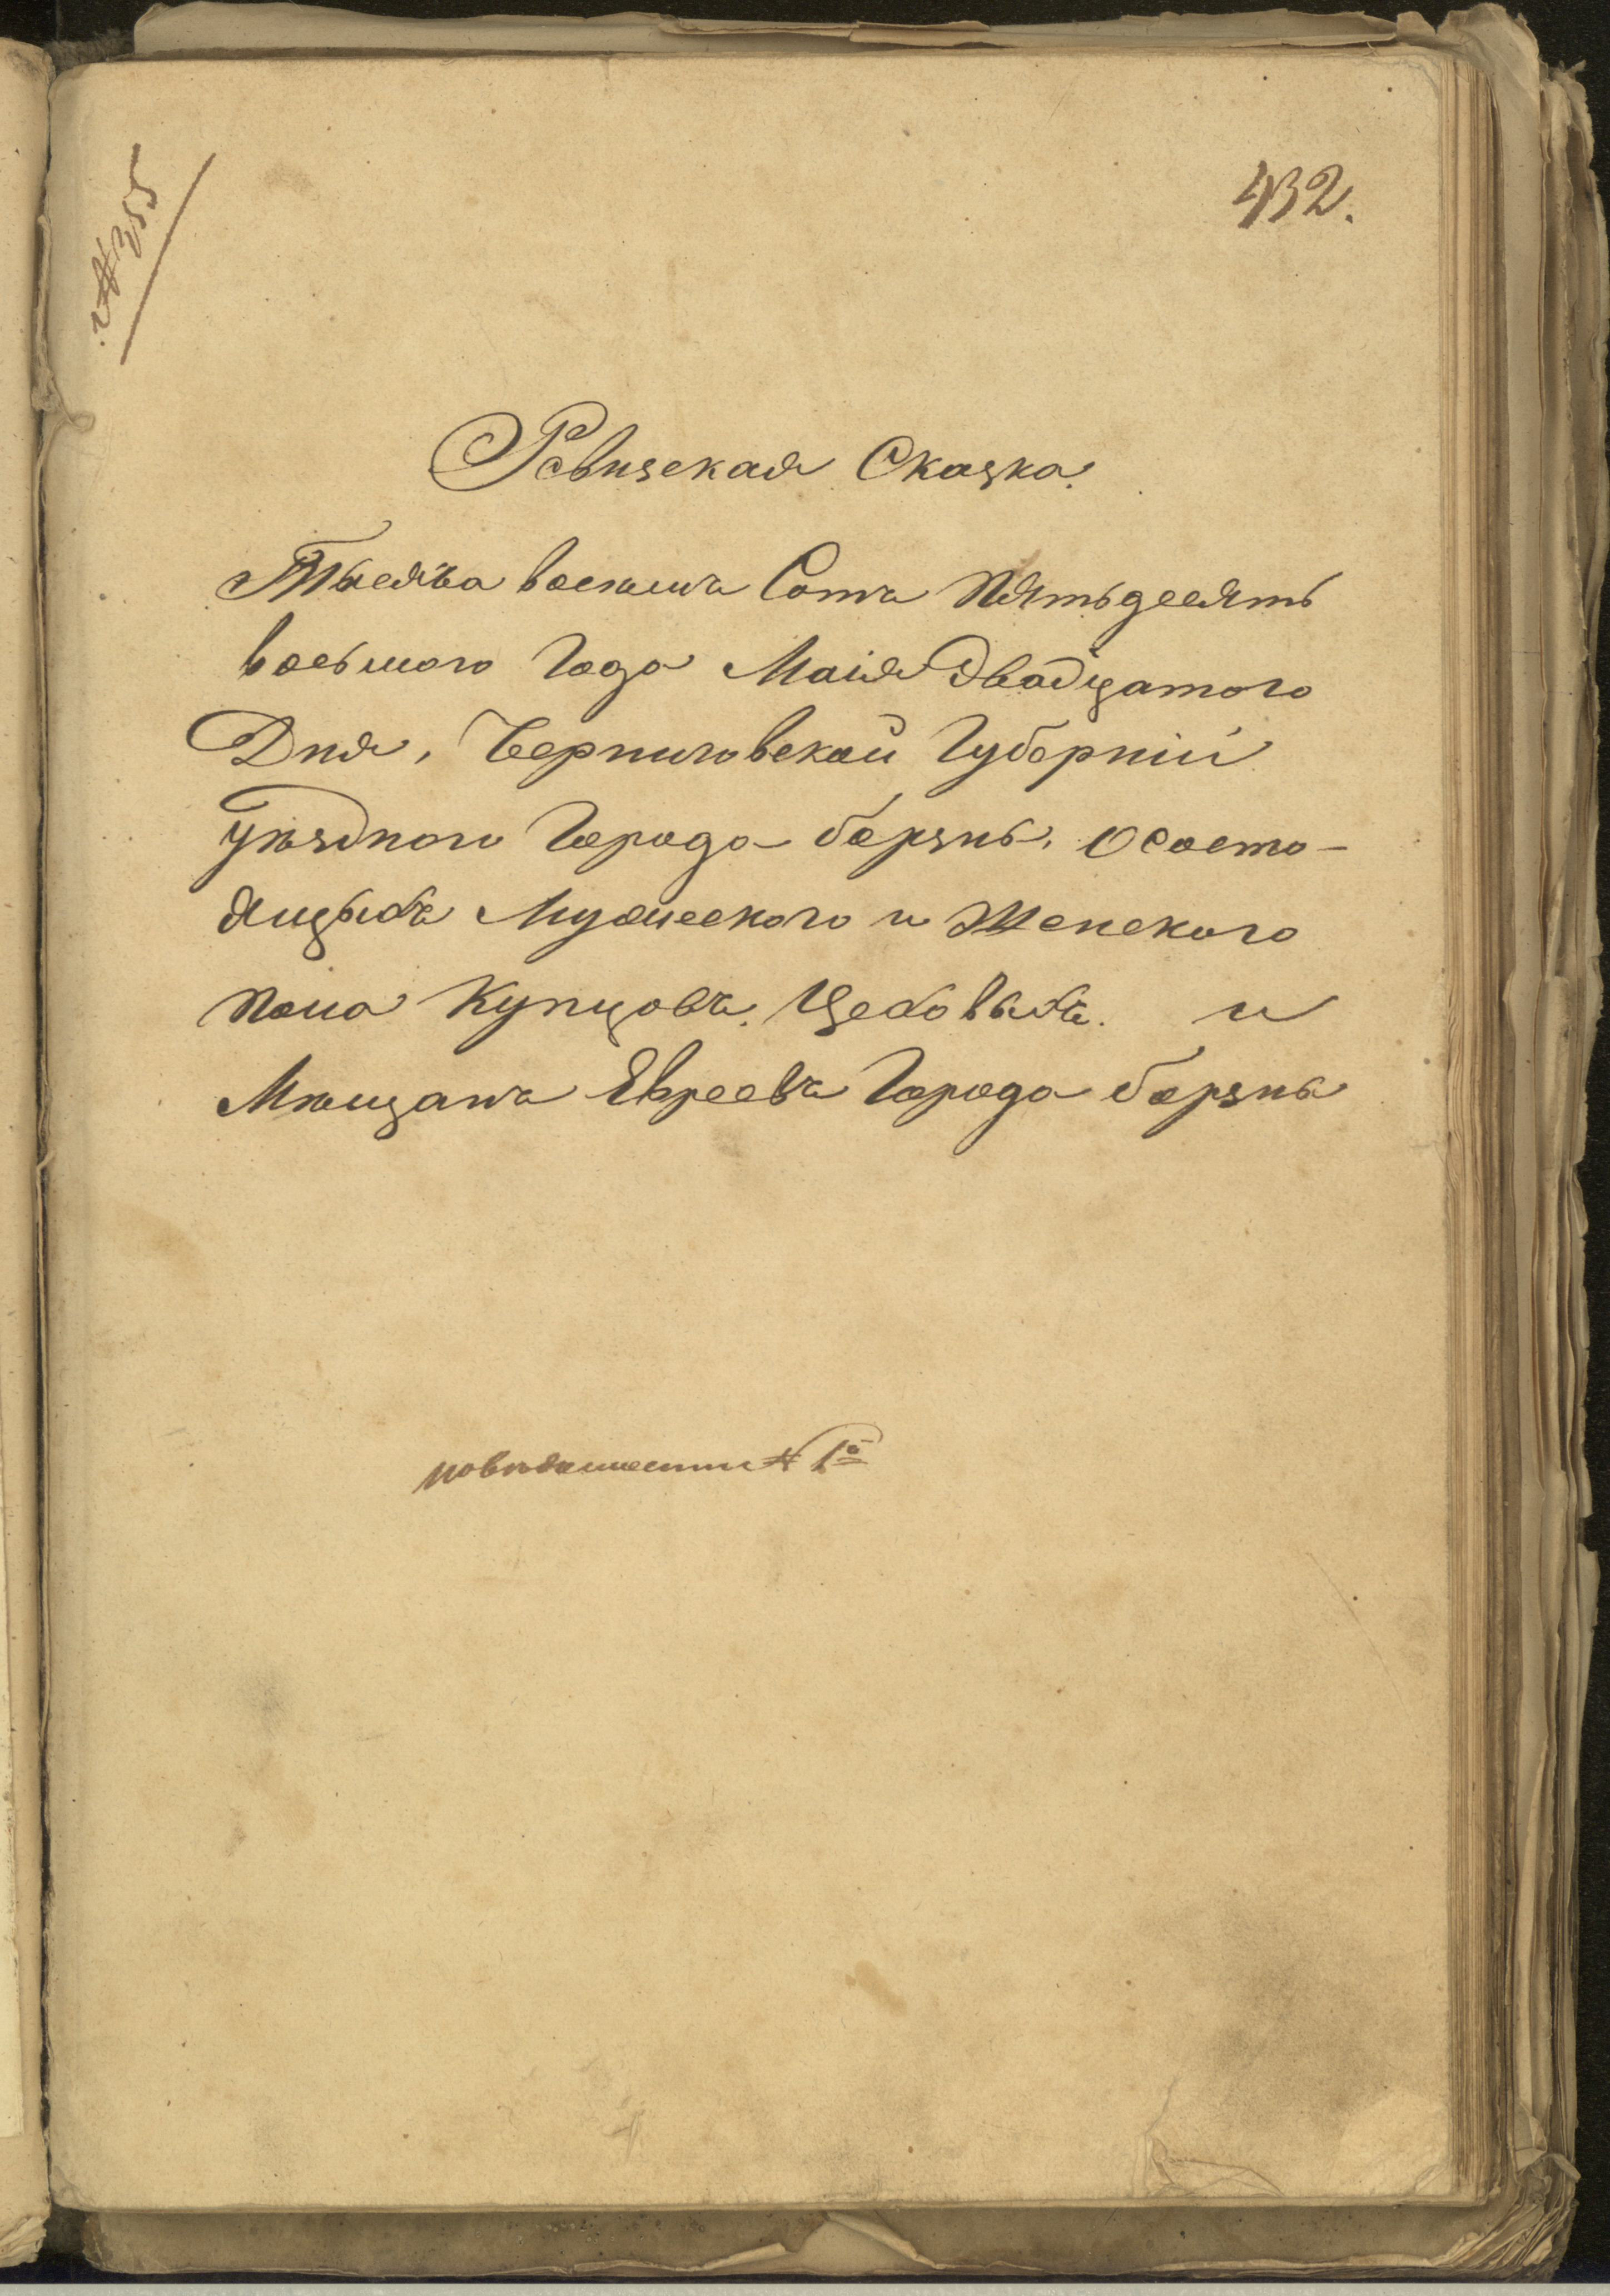 № 355
432.
Ревизская Сказка.
Тысяча восемъ Сотъ Пятьдесятъ
восьмого Года Маія двадцатого
Дня, Черниговской Губерніи
уѣздного Города борзны, о состо-
ящыхъ Мужеского и Женского
пола Купцовъ. Цеховыхъ. и
Мѣщанъ Евреевъ Города борзны
по вѣдомости № 1й